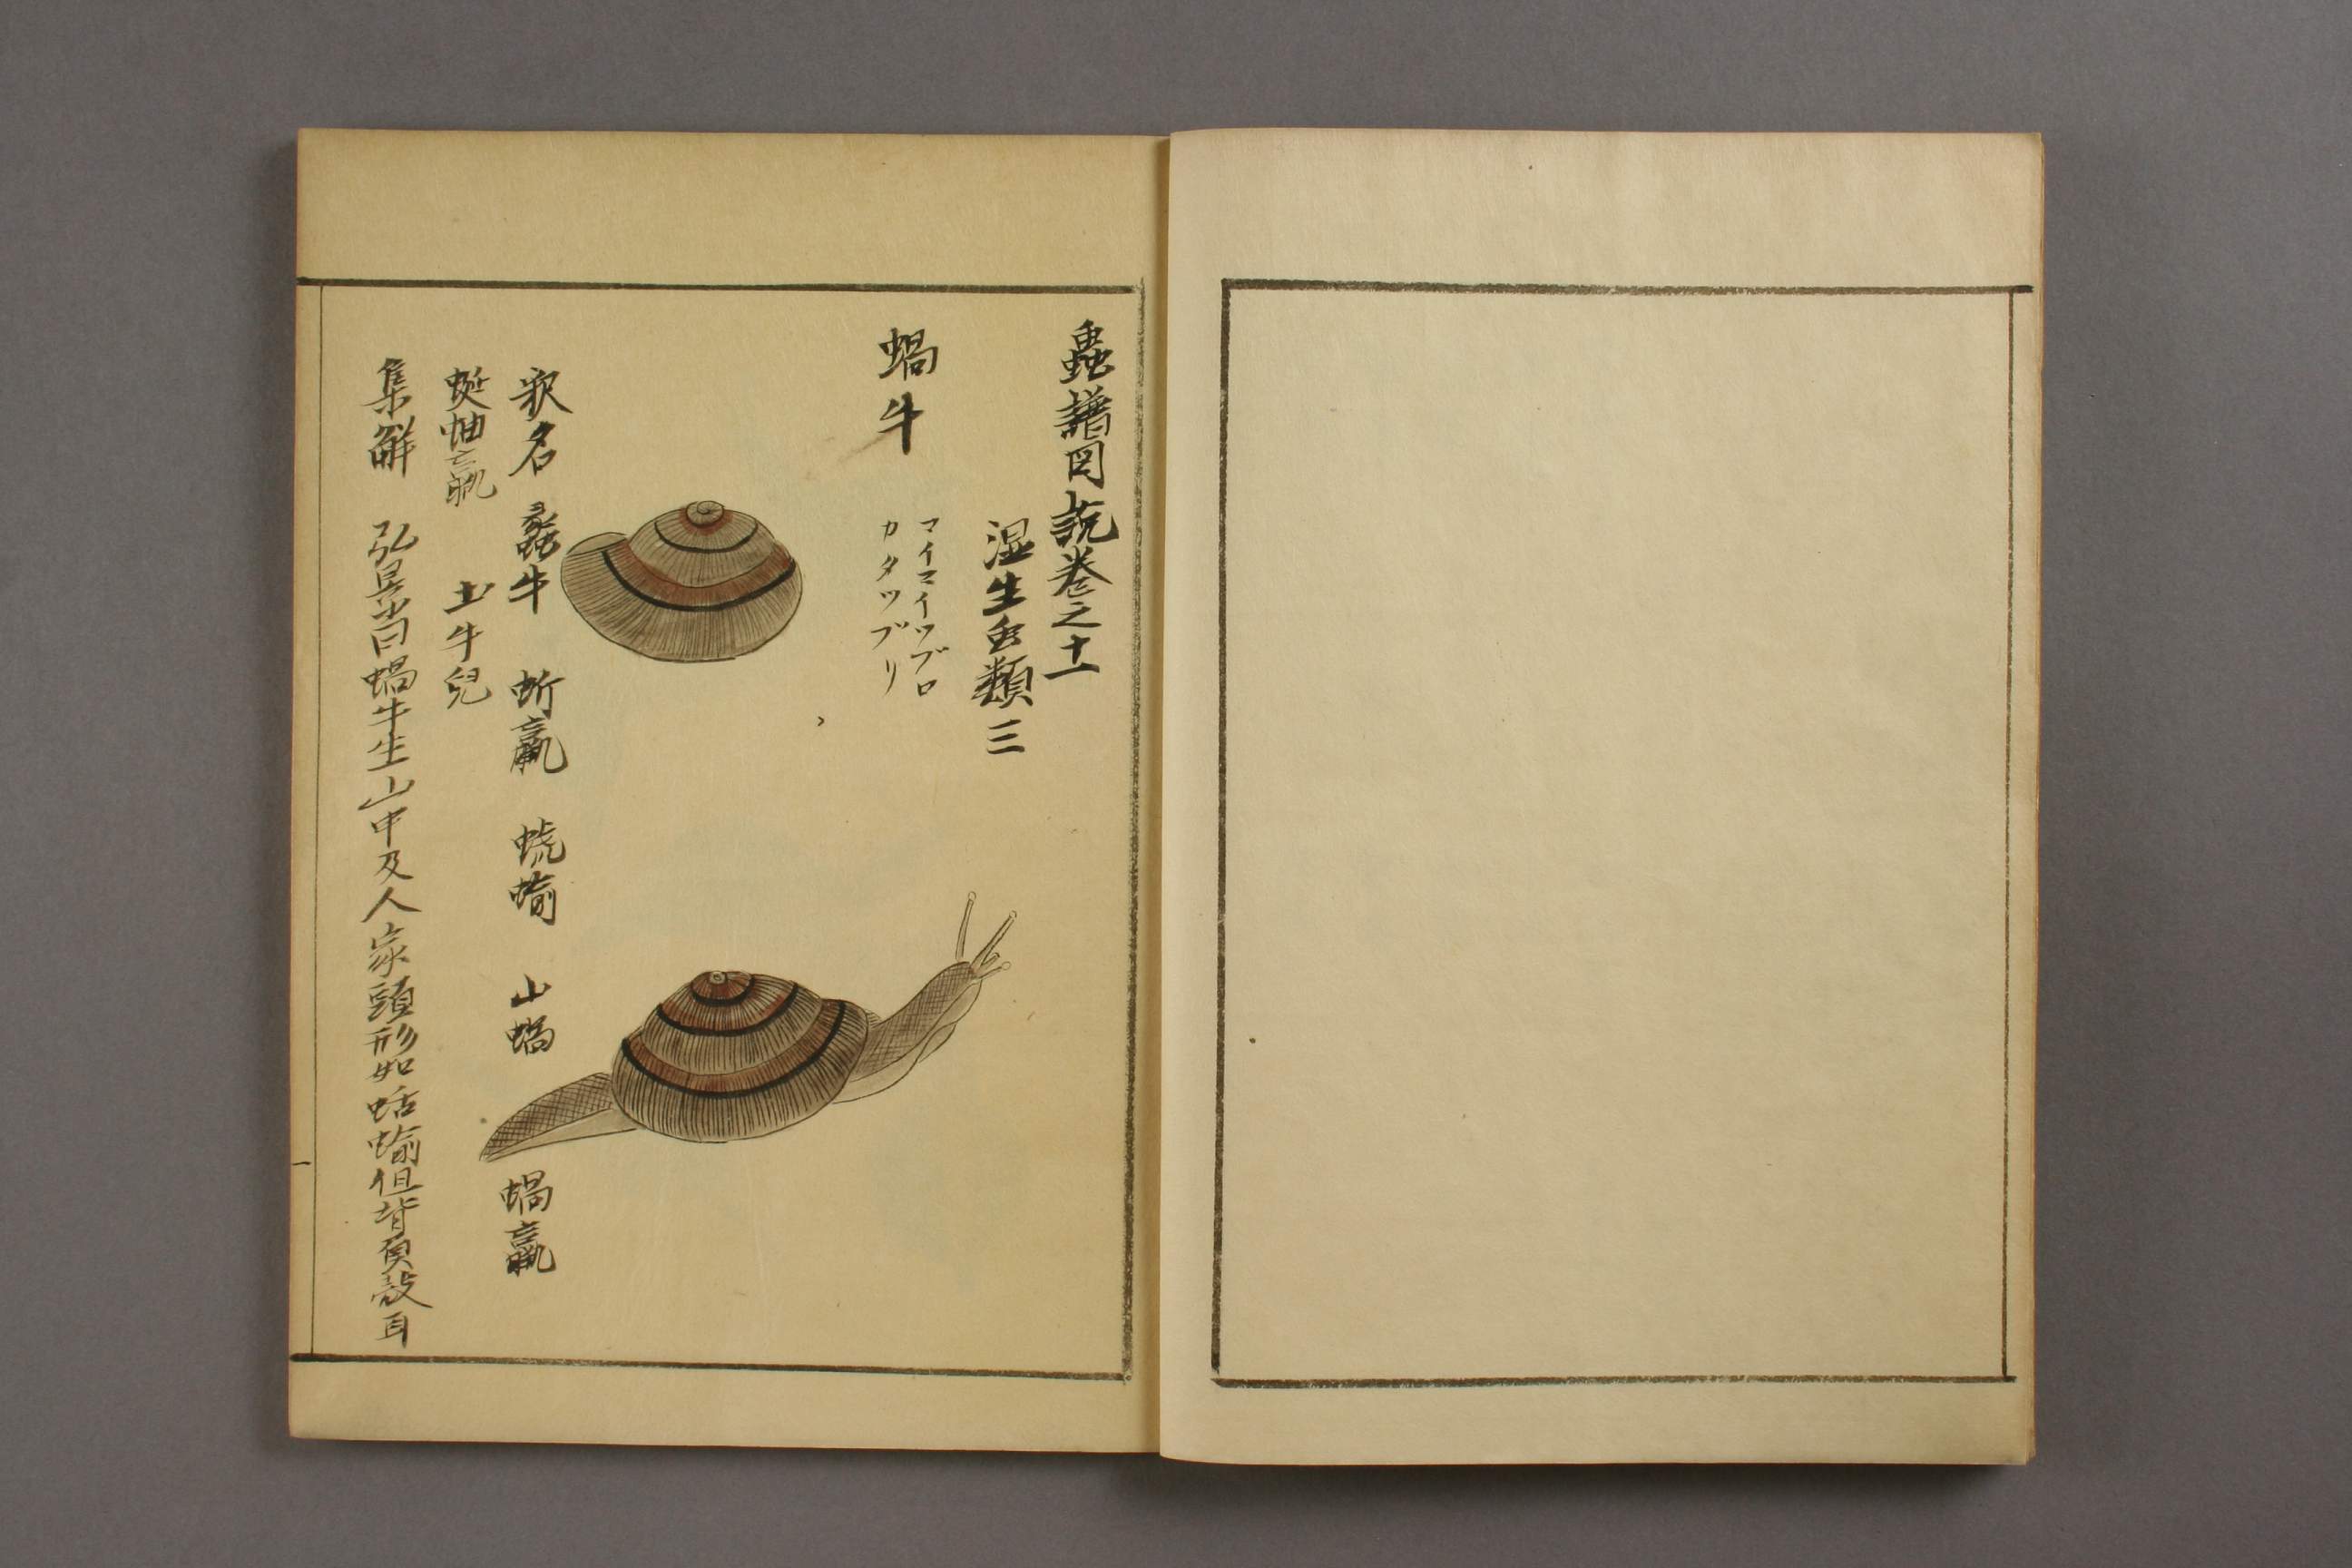 蟲譜図説巻之十一
湿生虫類三
蝸牛
マイマイツブロ
カタツブリ
釈名 蠡牛 蚚蠃 螔蝓 山蝸 蝸蠃
蜒蚰蠃 土牛兒
集解 弘景曰蝸牛生山中及人家頭形如蛞蝓但背負殼耳